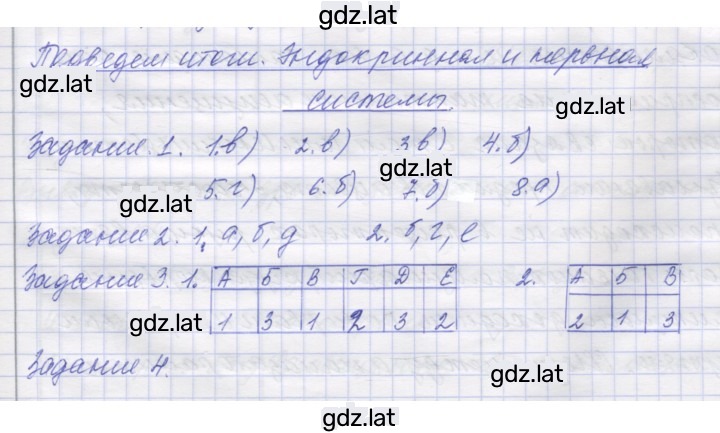 gdz.lat
Подведем итоги. Эндокринная и нервная
gdz.lat
системы.
gdz.lat
Задание 1. 1.в) 2.в) 3.в) 4.б)
gdz.lat
5.г) 6.б) 7.б) 8.а)
gdz.lat
Задание 2. 1. а, б, д 2. б, г, е
Задание 3. 1. А Б В Г Д Е 2. А Б В
1 3 1 2 3 2 2 1 3
gdz.lat
Задание 4.
gdz.lat
gdz.lat